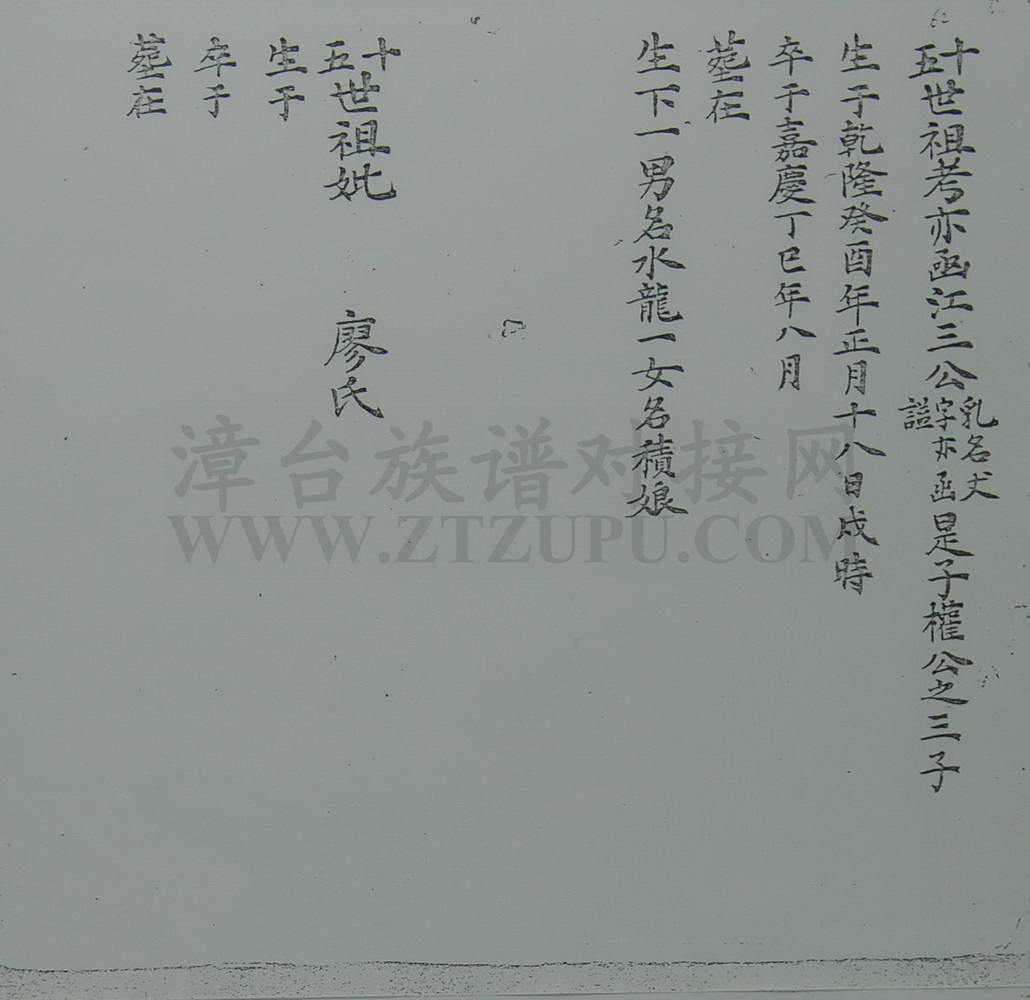 62
十五世祖考亦函江三公乳名犬字亦函諡是子權公之三子
生于乾隆癸酉年正月十八日戌時
卒于嘉慶丁巳年八月
墓在
生下一男名水龍一女名積娘
十五世祖妣 廖氏
生于
卒于
墓在
漳台族谱对接网
WWW.ZTZUPU.COM